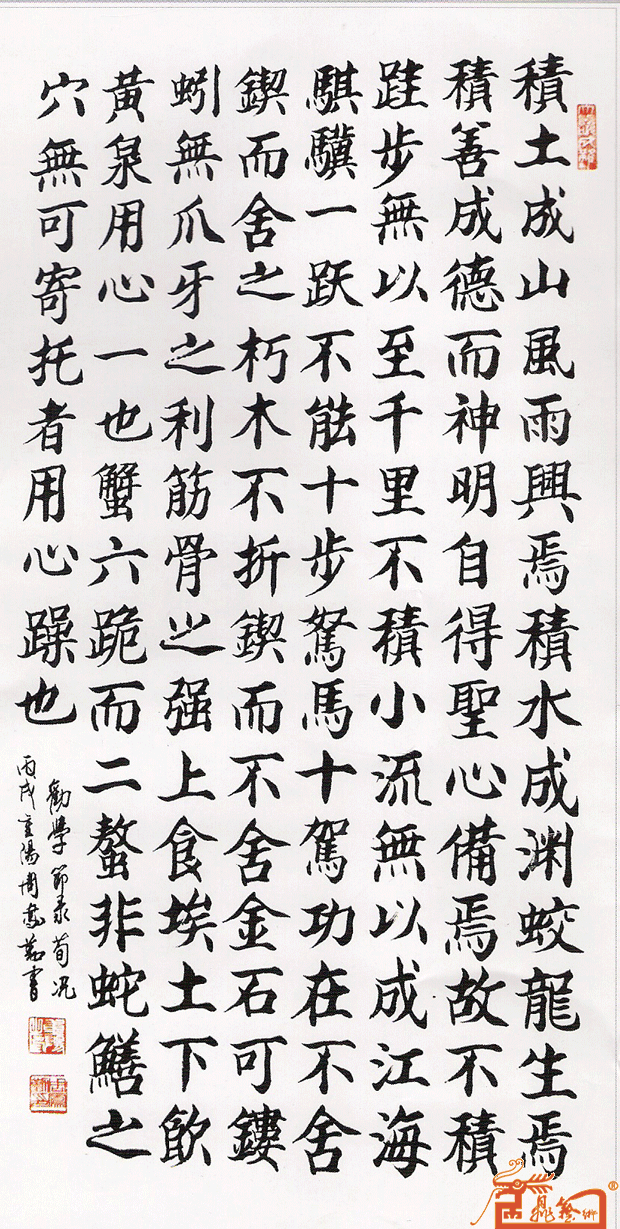 積土成山風雨興焉積水成渊蛟龍生焉
積善成德而神明自得聖心備焉故不積
跬步無以至千里不積小流無以成江海
騏驥一跃不能十步駑馬十駕功在不舍
鍥而舍之朽木不折鍥而不舍金石可鏤
蚓無爪牙之利筋骨之强上食埃土下飲
黃泉用心一也蟹六跪而二螯非蛇鱔之
穴無可寄托者用心躁也
勸學節录荀况
丙戌重陽周書